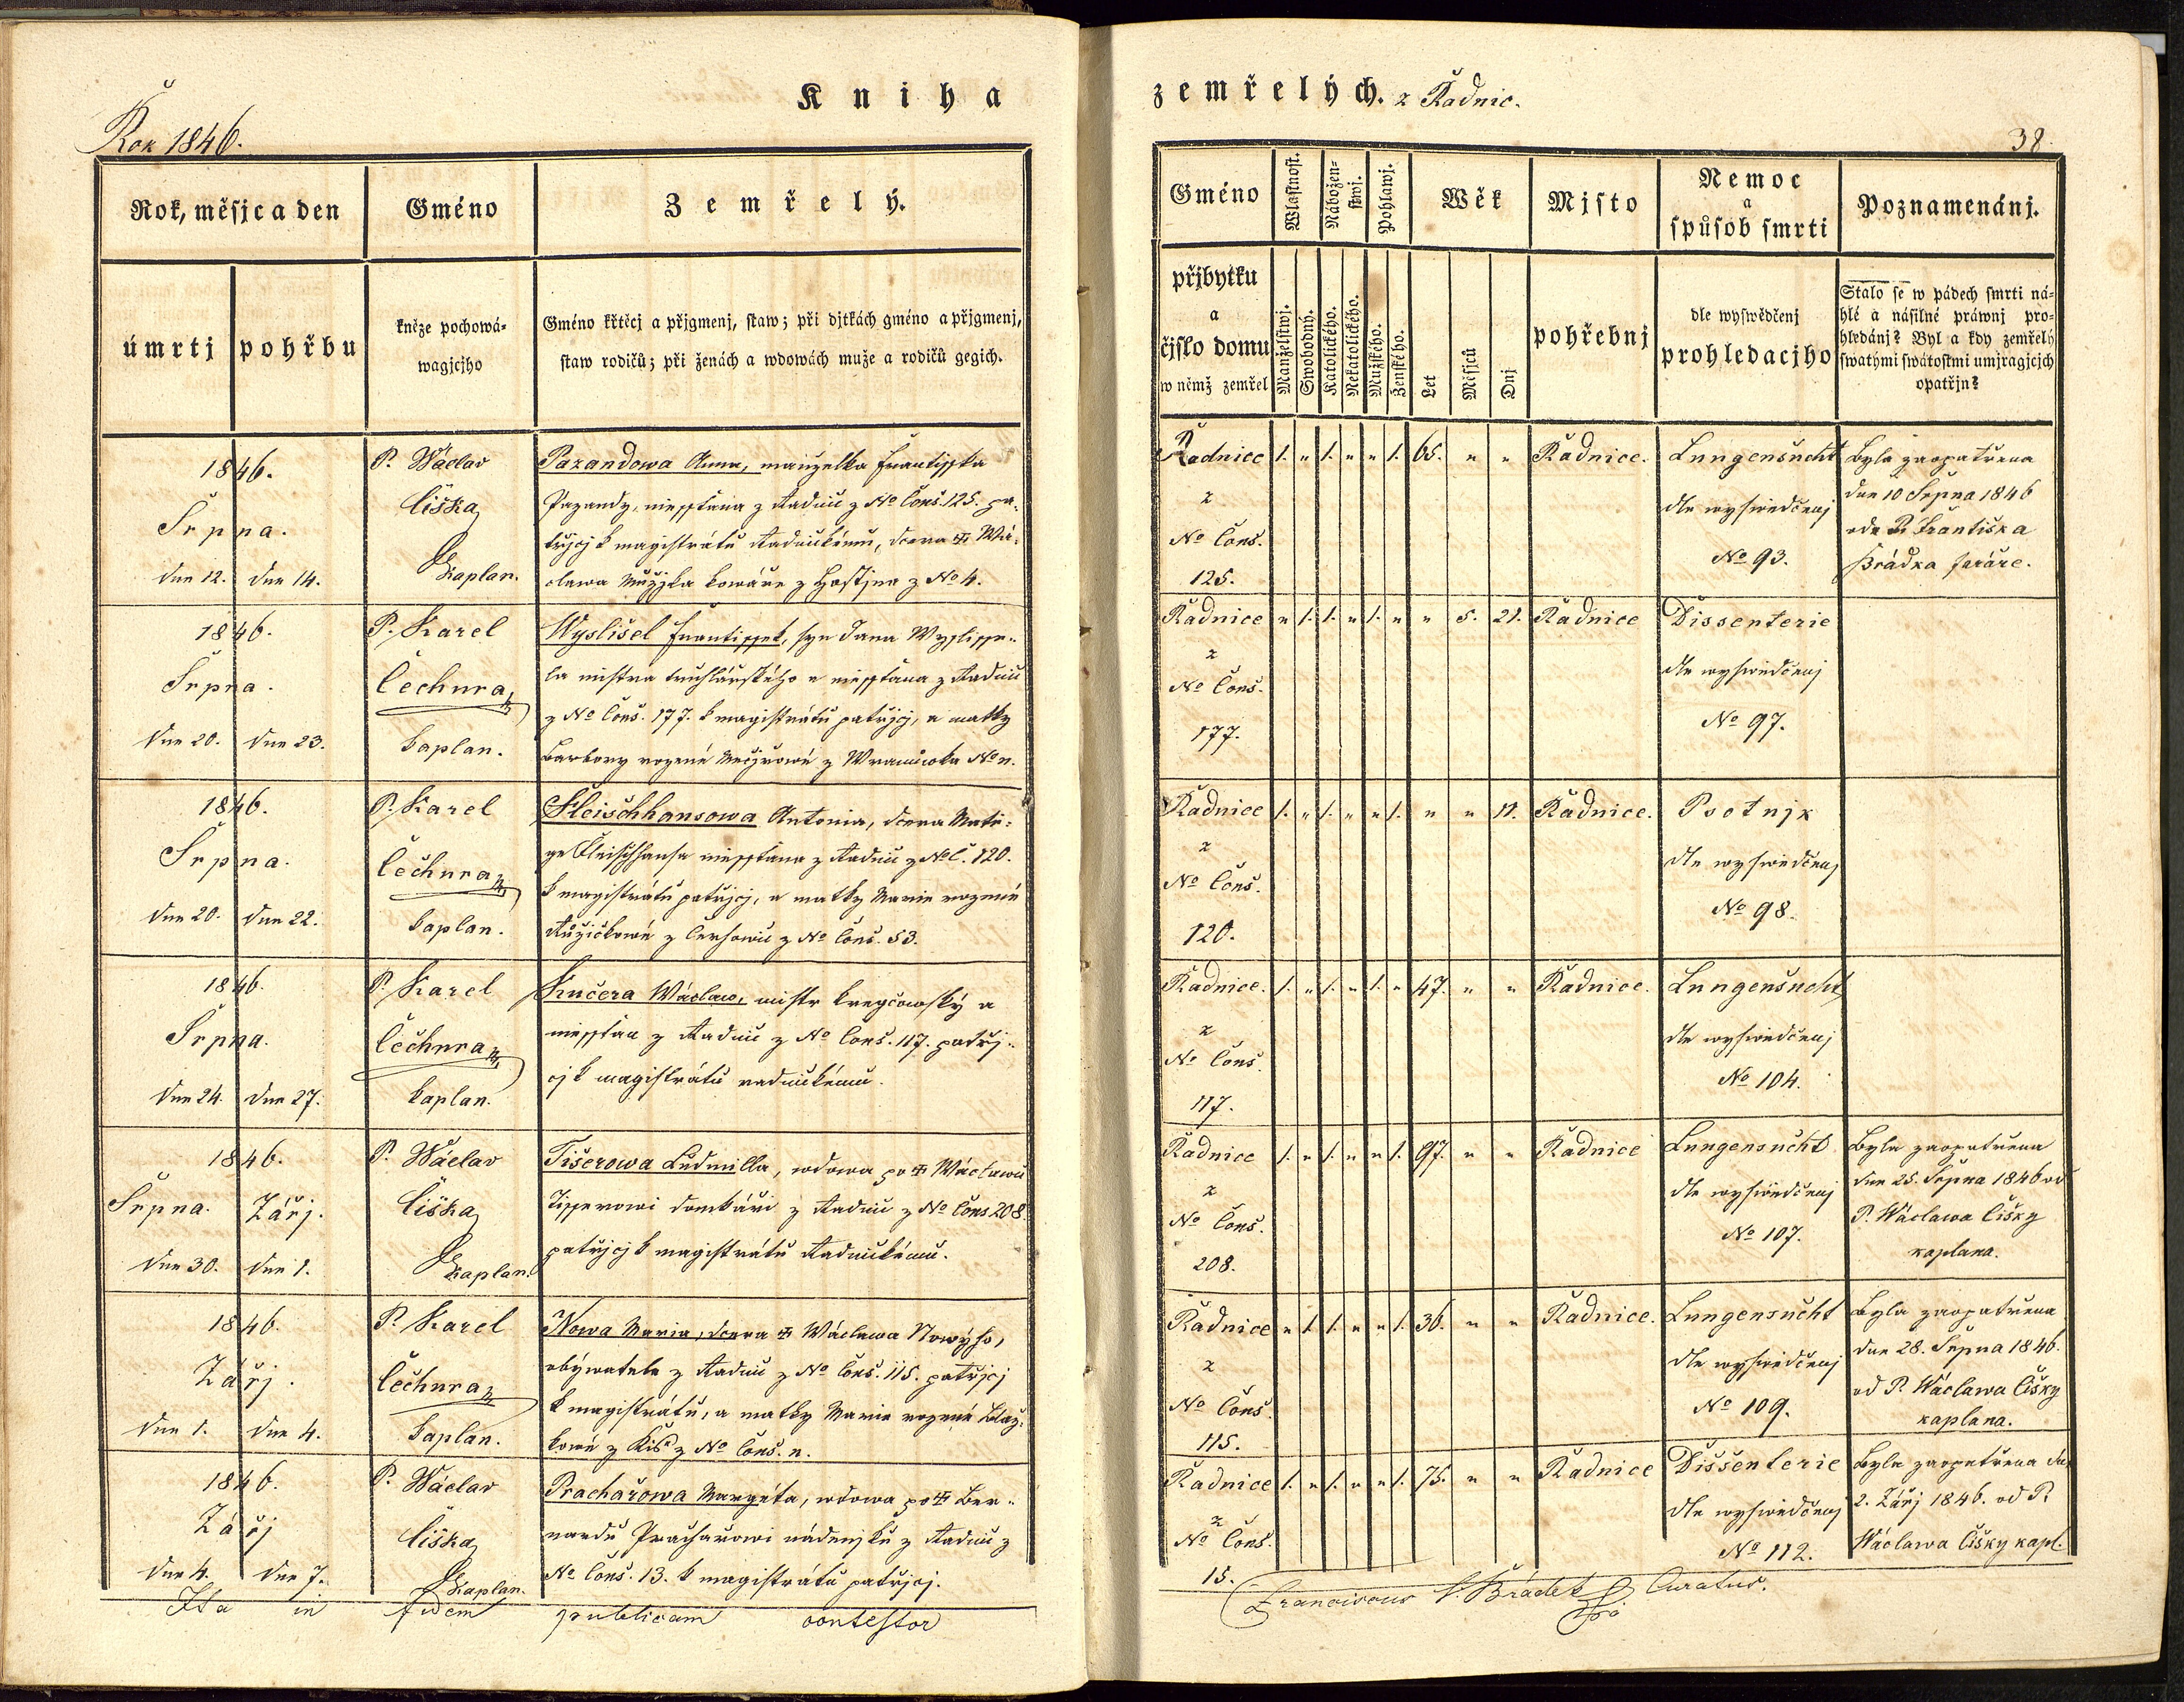 Kniha
zemřelých. z Radnic.
Rok 1846.
38.
Rok, měsjc a den
Gméno
Zemřelý.
úmrtj
pohřbu
kněze pochowá-
wagjcjho
Gméno křtěcj a přjgmenj, staw; při djtkách gméno a přjgmenj,
staw rodičů; při ženách a wdowách muže a rodičů gegich.
1846.
Srpna.
dne 12. dne 14.
P. Wáclav
Čiška
Kaplan.
Pazandowa Anna, manželka Frantisska
Pazandy, miesstiana z Radnic z No Cons. 125. pa-
třjcj k magistrátu Radnickému, dcera Wá-
clawa kowáře z z No 4.
1846.
Srpna.
dne 20. dne 23.
P. Karel
Čechura
kaplan.
Wyslišel Frantisset, syn Jana Wyslisse-
la mistra truhlárského a miesstiana z Radnic
z No Cons. 177. k magistrátu patřjcj, a matky
Barbory rozené z Wranowka No n.
1846.
Srpna.
dne 20. dne 22.
P. Karel
Čechura
kaplan.
Fleischhansowa Antonia, dcera Matě-
ge Fleischhansa miesstiana z Radnic z No C. 120.
k magistrátu patřjcj, a matky Marie rozené
Růžičkowé z z No Cons. 53.
1846.
Srpna.
dne 24. dne 27.
P. Karel
Čechura
kaplan.
Kučera Wáclaw, mistr kregčowský a
miesstian z Radnic z No Cons. 117. patřj-
cj k magistrátu radnickému.
1846.
Srpna. Zářj.
dne 30. dne 1.
P. Wáclav
Čiška
Kaplan.
Tišerowa Ludmilla, wdowa po Wáclawu
Tisserowi domkáři z Radnic z No Cons 208.
patřjcj k magistrátu Radnickému.
1846.
Zářj.
dne 1. dne 4.
P. Karel
Čechura
kaplan.
Nowa Maria, dcera Wáclawa Nowýho,
obýwatele z Radnic z No Cons. 115. patřjcj
k magistrátu, a matky Marie rozené Blaž-
kowé z z No Cons. n.
1846.
Zářj
dne 4. dne 7.
P. Wáclav
Čiška
Kaplan.
Prachařowa Margéta, wdowa po Ber-
nardu Prachařowi nádenjku z Radnic z
No Cons. 13. k magistrátu patřjcj.
Ita in fidem publicam contestor
Gméno
přjbytku
a
čjslo domu
w němž zemřel
Wlastnost.
Manželstwj.
Swobodný.
Nábožen-
stwj.
Katolického.
Nekatolického.
Pohlawj.
Mužského.
Ženského.
Wěk
Let
Měsjců
Dnj
Mjsto
pohřebnj
Nemoc
a
spůsob smrti
dle wyswědčenj
prohledacjho
Poznamenánj.
Stalo se w pádech smrti ná-
hlé a násilné práwnj pro-
hledánj? Byl a kdy zemřelý
swatými swátostmi umjragjcjch
opatřjn?
Radnice 1. " 1. " " 1. 65. " " Radnice. Lungensucht
z
No Cons.
125.
dle wyswědčenj
No 93.
Byla zaopatřena
dne 10 Srpna 1846
ode P. Františka
Brádka faráře.
Radnice " 1. 1. " 1. " " 5. 21. Radnice Dissenterie
z
No Cons.
177.
dle wyswědčenj
No 97.
Radnice 1. " 1. " " 1. " " 11. Radnice. Psotnjk
z
No Cons.
120.
dle wyswědčenj
No 98.
Radnice. 1. " 1. " 1. " 47. " " Radnice. Lungensucht
z
No Cons.
117.
dle wyswědčenj
No 104.
Radnice 1. " 1. " " 1. 97. " " Radnice Lungensucht
z
No Cons.
208.
dle wyswědčenj
No 107.
Byla zaopatřena
dne 25. Srpna 1846 od
P. Wáclawa Čišky
kaplana.
Radnice " 1. 1. " " 1. 36. " " Radnice. Lungensucht
z
No Cons.
115.
dle wyswědčenj
No 109.
Byla zaopatřena
dne 28. Srpna 1846.
od P. Wáclawa Čišky
kaplana.
Radnice 1. " 1. " " 1. 75. " " Radnice Dissenterie
z
No Cons.
13.
dle wyswědčenj
No 112.
Byla zaopatřena dne
2. Zářj 1846. od P.
Wáclawa Čišky kapl.
Franciscus Brádek Curatus.